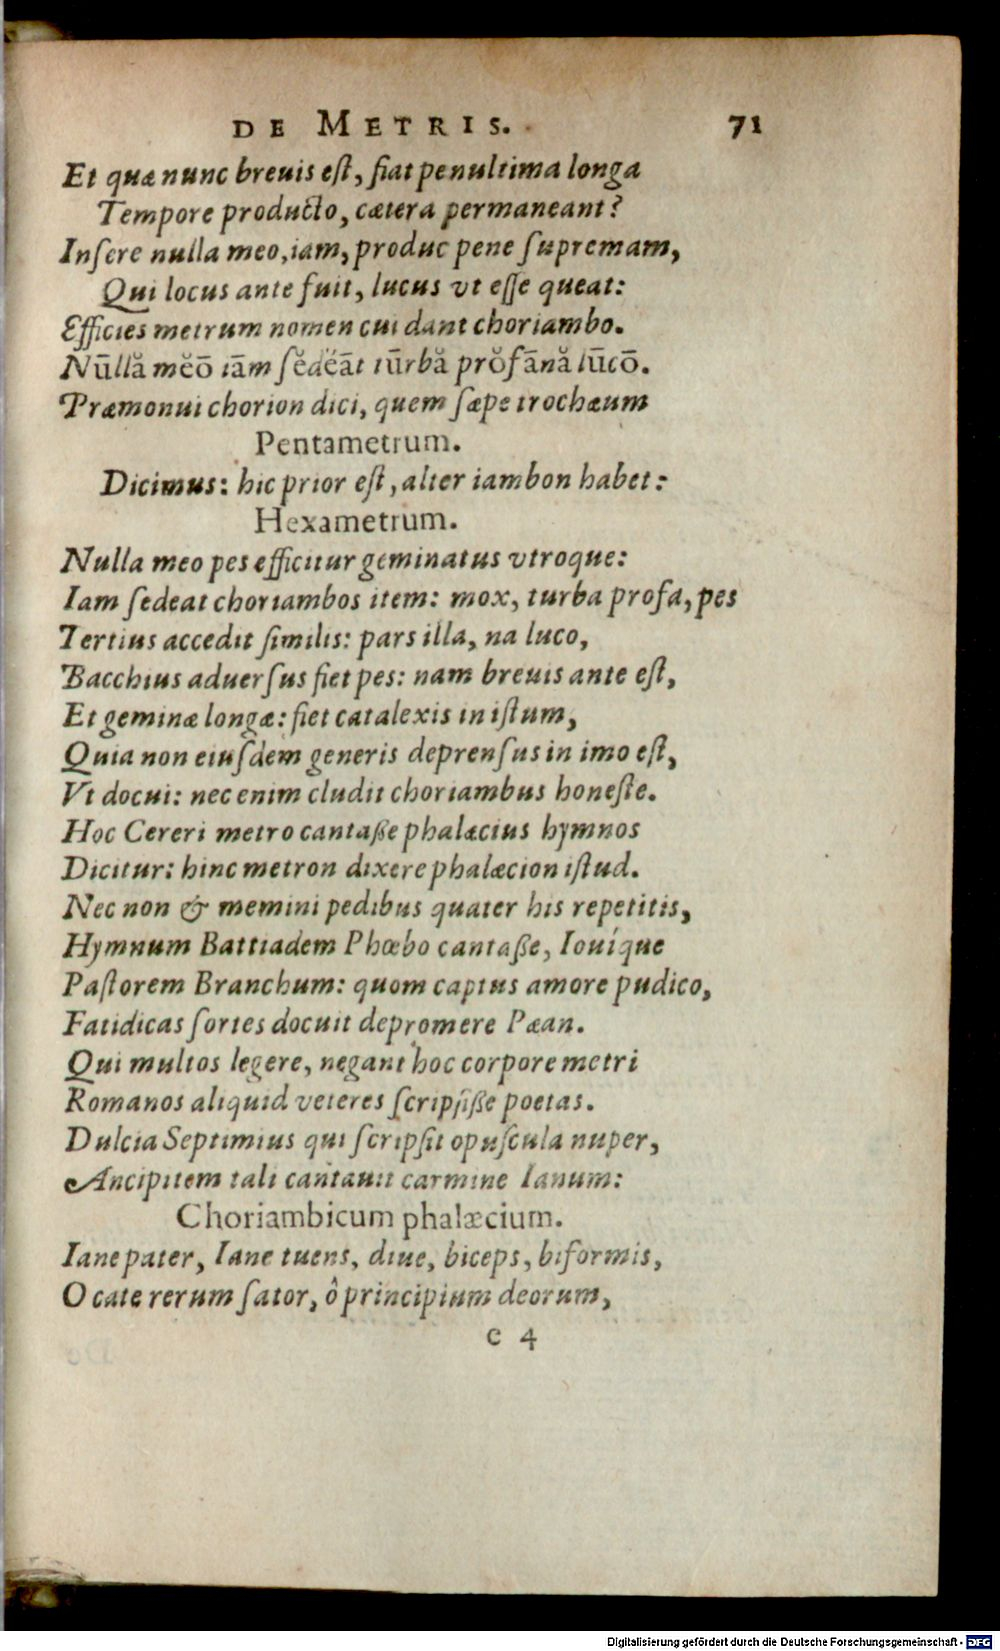 DE METRIS. 71
Et quæ nunc breuis eſt, fiat penultima longa
Tempore producto, cætera permaneant?
Inſere nulla meo, iam, produc pene ſupremam,
Qui locus ante fuit, lucus vt eſſe queat:
Efficies metrum nomen cui dant choriambo.
Nūllă mĕō iām ſĕdĕāt tūrbă prŏfānă lūcō.
Præmonui chorion dici, quem ſæpe trochæum
Pentametrum.
Dicimus: hic prior eſt, alter iambon habet:
Hexametrum.
Nulla meo pes efficitur geminatus vtroque:
Iam ſedeat choriambos item: mox, turba profa, pes
Tertius accedit ſimilis: pars illa, na luco,
Bacchius aduerſus fiet pes: nam breuis ante eſt,
Et geminæ longæ: fiet catalexis in iſtum,
Quia non eiuſdem generis deprenſus in imo eſt,
Vt docui: nec enim cludit choriambus honeſte.
Hoc Cereri metro cantaße phalæcius hymnos
Dicitur: hinc metron dixere phalæcion iſtud.
Nec non & memini pedibus quater his repetitis,
Hymnum Battiadem Phœbo cantaße, Iouíque
Paſtorem Branchum: quom captus amore pudico,
Fatidicas ſortes docuit depromere Pæan.
Qui multos legere, negant hoc corpore metri
Romanos aliquid veteres ſcripſiße poetas.
Dulcia Septimius qui ſcripſit opuſcula nuper,
Ancipitem tali cantauit carmine Ianum:
Choriambicum phalæcium.
Iane pater, Iane tuens, diue, biceps, biformis,
O cate rerum ſator, ô principium deorum,
c 4
Digitalisierung gefördert durch die Deutsche Forschungsgemeinschaft - DFG